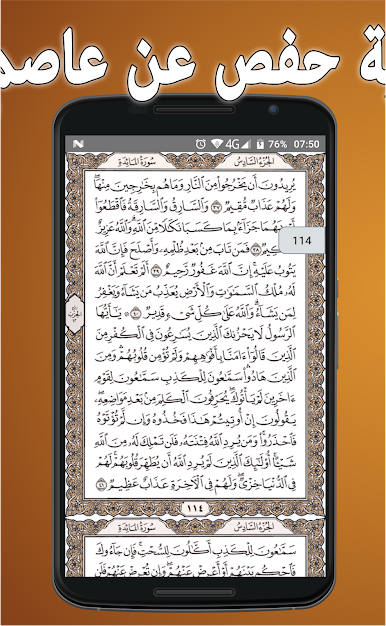 ة حفص عن عاصم
4G 76% 07:50
سورة المائدة الجزء السادس
يريدون أن يخرجوا من النار وما هم بخارجين منها
ولهم عذاب مقيم ٣٧ والسارق والسارقة فاقطعوا
أيديهما جزاء بما كسبا نكالا من الله والله عزيز
حكيم ٣٨ فمن تاب من بعد ظلمه وأصلح فإن الله
114
يتوب عليه إن الله غفور رحيم ٣٩ ألم تعلم أن الله
له ملك السموات والأرض يعذب من يشاء ويغفر
لمن يشاء والله على كل شيء قدير ٤٠ يأيها
الرسول لا يحزنك الذين يسرعون في الكفر من
الذين قالوا ءامنا بأفوههم ولم تؤمن قلوبهم ومن
الذين هادوا سمعون للكذب سمعون لقوم
ءاخرين لم يأتوك يحرفون الكلم من بعد مواضعه
يقولون إن أوتيتم هذا فخذوه وإن لم تؤتوه
فاحذروا ومن يرد الله فتنته فلن تملك له من الله
شيئا أولئك الذين لم يرد الله أن يطهر قلوبهم لهم
في الدنيا خزي ولهم في الآخرة عذاب عظيم ٤١
١١٤
سورة المائدة الجزء السادس
سمعون للكذب أكلون للسحت فإن جاءوك
فاحكم بينهم أو أعرض عنهم وإن تعرض عنهم فلن